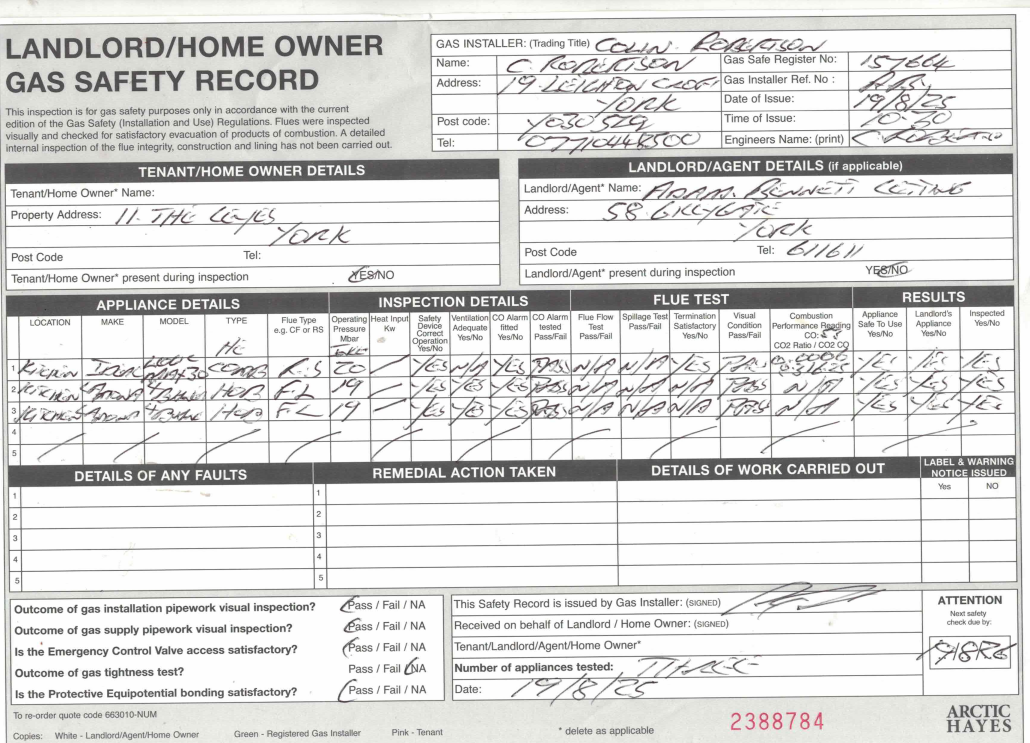 LANDLORD/HOME OWNER
GAS SAFETY RECORD
This inspection is for gas safety purposes only in accordance with the current
edition of the Gas Safety (Installation and Use) Regulations. Flues were inspected
visually and checked for satisfactory evacuation of products of combustion. A detailed
internal inspection of the flue integrity, construction and lining has not been carried out.
GAS INSTALLER: (Trading Title) COLIN ROBERTSON
Name: C. ROBERTSON Gas Safe Register No: 157664
Address: 19 LEIGHTON CROFT Gas Installer Ref. No :
YORK Date of Issue: 19/8/25
Post code: YO30 5ZQ Time of Issue: 10-30
Tel: 07710448500 Engineers Name: (print) C ROBERTSON
TENANT/HOME OWNER DETAILS
Tenant/Home Owner* Name:
Property Address: 11. THE LEYES
YORK
Post Code Tel:
Tenant/Home Owner* present during inspection YES/NO
LANDLORD/AGENT DETAILS (if applicable)
Landlord/Agent* Name: ADAM. BENNETT LETTING
Address: 58 GILLYGATE
YORK
Post Code Tel: 611611
Landlord/Agent* present during inspection YES/NO
APPLIANCE DETAILS INSPECTION DETAILS FLUE TEST RESULTS
LOCATION MAKE MODEL TYPE Flue Type e.g. CF or RS Operating Pressure Mbar Heat Input Kw Safety Device Correct Operation Yes/No Ventilation Adequate Yes/No CO Alarm fitted Yes/No CO Alarm tested Pass/Fail Flue Flow Test Pass/Fail Spillage Test Pass/Fail Termination Satisfactory Yes/No Visual Condition Pass/Fail Combustion Performance Reading CO: CO2 Ratio / CO2 CO Appliance Safe To Use Yes/No Landlord's Appliance Yes/No Inspected Yes/No
HE
1 KITCHEN IDEAL LOGIC MAX 30 COMB R.S 20 / YES N/A YES PASS N/A N/A YES PASS YES YES YES
2 KITCHEN HOB F.L 19 / YES YES YES PASS N/A N/A N/A PASS N/A YES YES YES
3 KITCHEN HOB F.L 19 / YES YES YES PASS N/A N/A N/A PASS N/A YES YES YES
4
5
DETAILS OF ANY FAULTS REMEDIAL ACTION TAKEN DETAILS OF WORK CARRIED OUT LABEL & WARNING NOTICE ISSUED
Yes NO
1 1
2 2
3 3
4 4
5 5
Outcome of gas installation pipework visual inspection? Pass / Fail / NA
Outcome of gas supply pipework visual inspection? Pass / Fail / NA
Is the Emergency Control Valve access satisfactory? Pass / Fail / NA
Outcome of gas tightness test? Pass / Fail / NA
Is the Protective Equipotential bonding satisfactory? Pass / Fail / NA
This Safety Record is issued by Gas Installer: (SIGNED)
Received on behalf of Landlord / Home Owner: (SIGNED)
Tenant/Landlord/Agent/Home Owner*
Number of appliances tested: THREE
Date: 19/8/25
ATTENTION
Next safety
check due by:
19/8/26
To re-order quote code 663010-NUM
Copies: White - Landlord/Agent/Home Owner Green - Registered Gas Installer Pink - Tenant
* delete as applicable
2388784
ARCTIC
HAYES